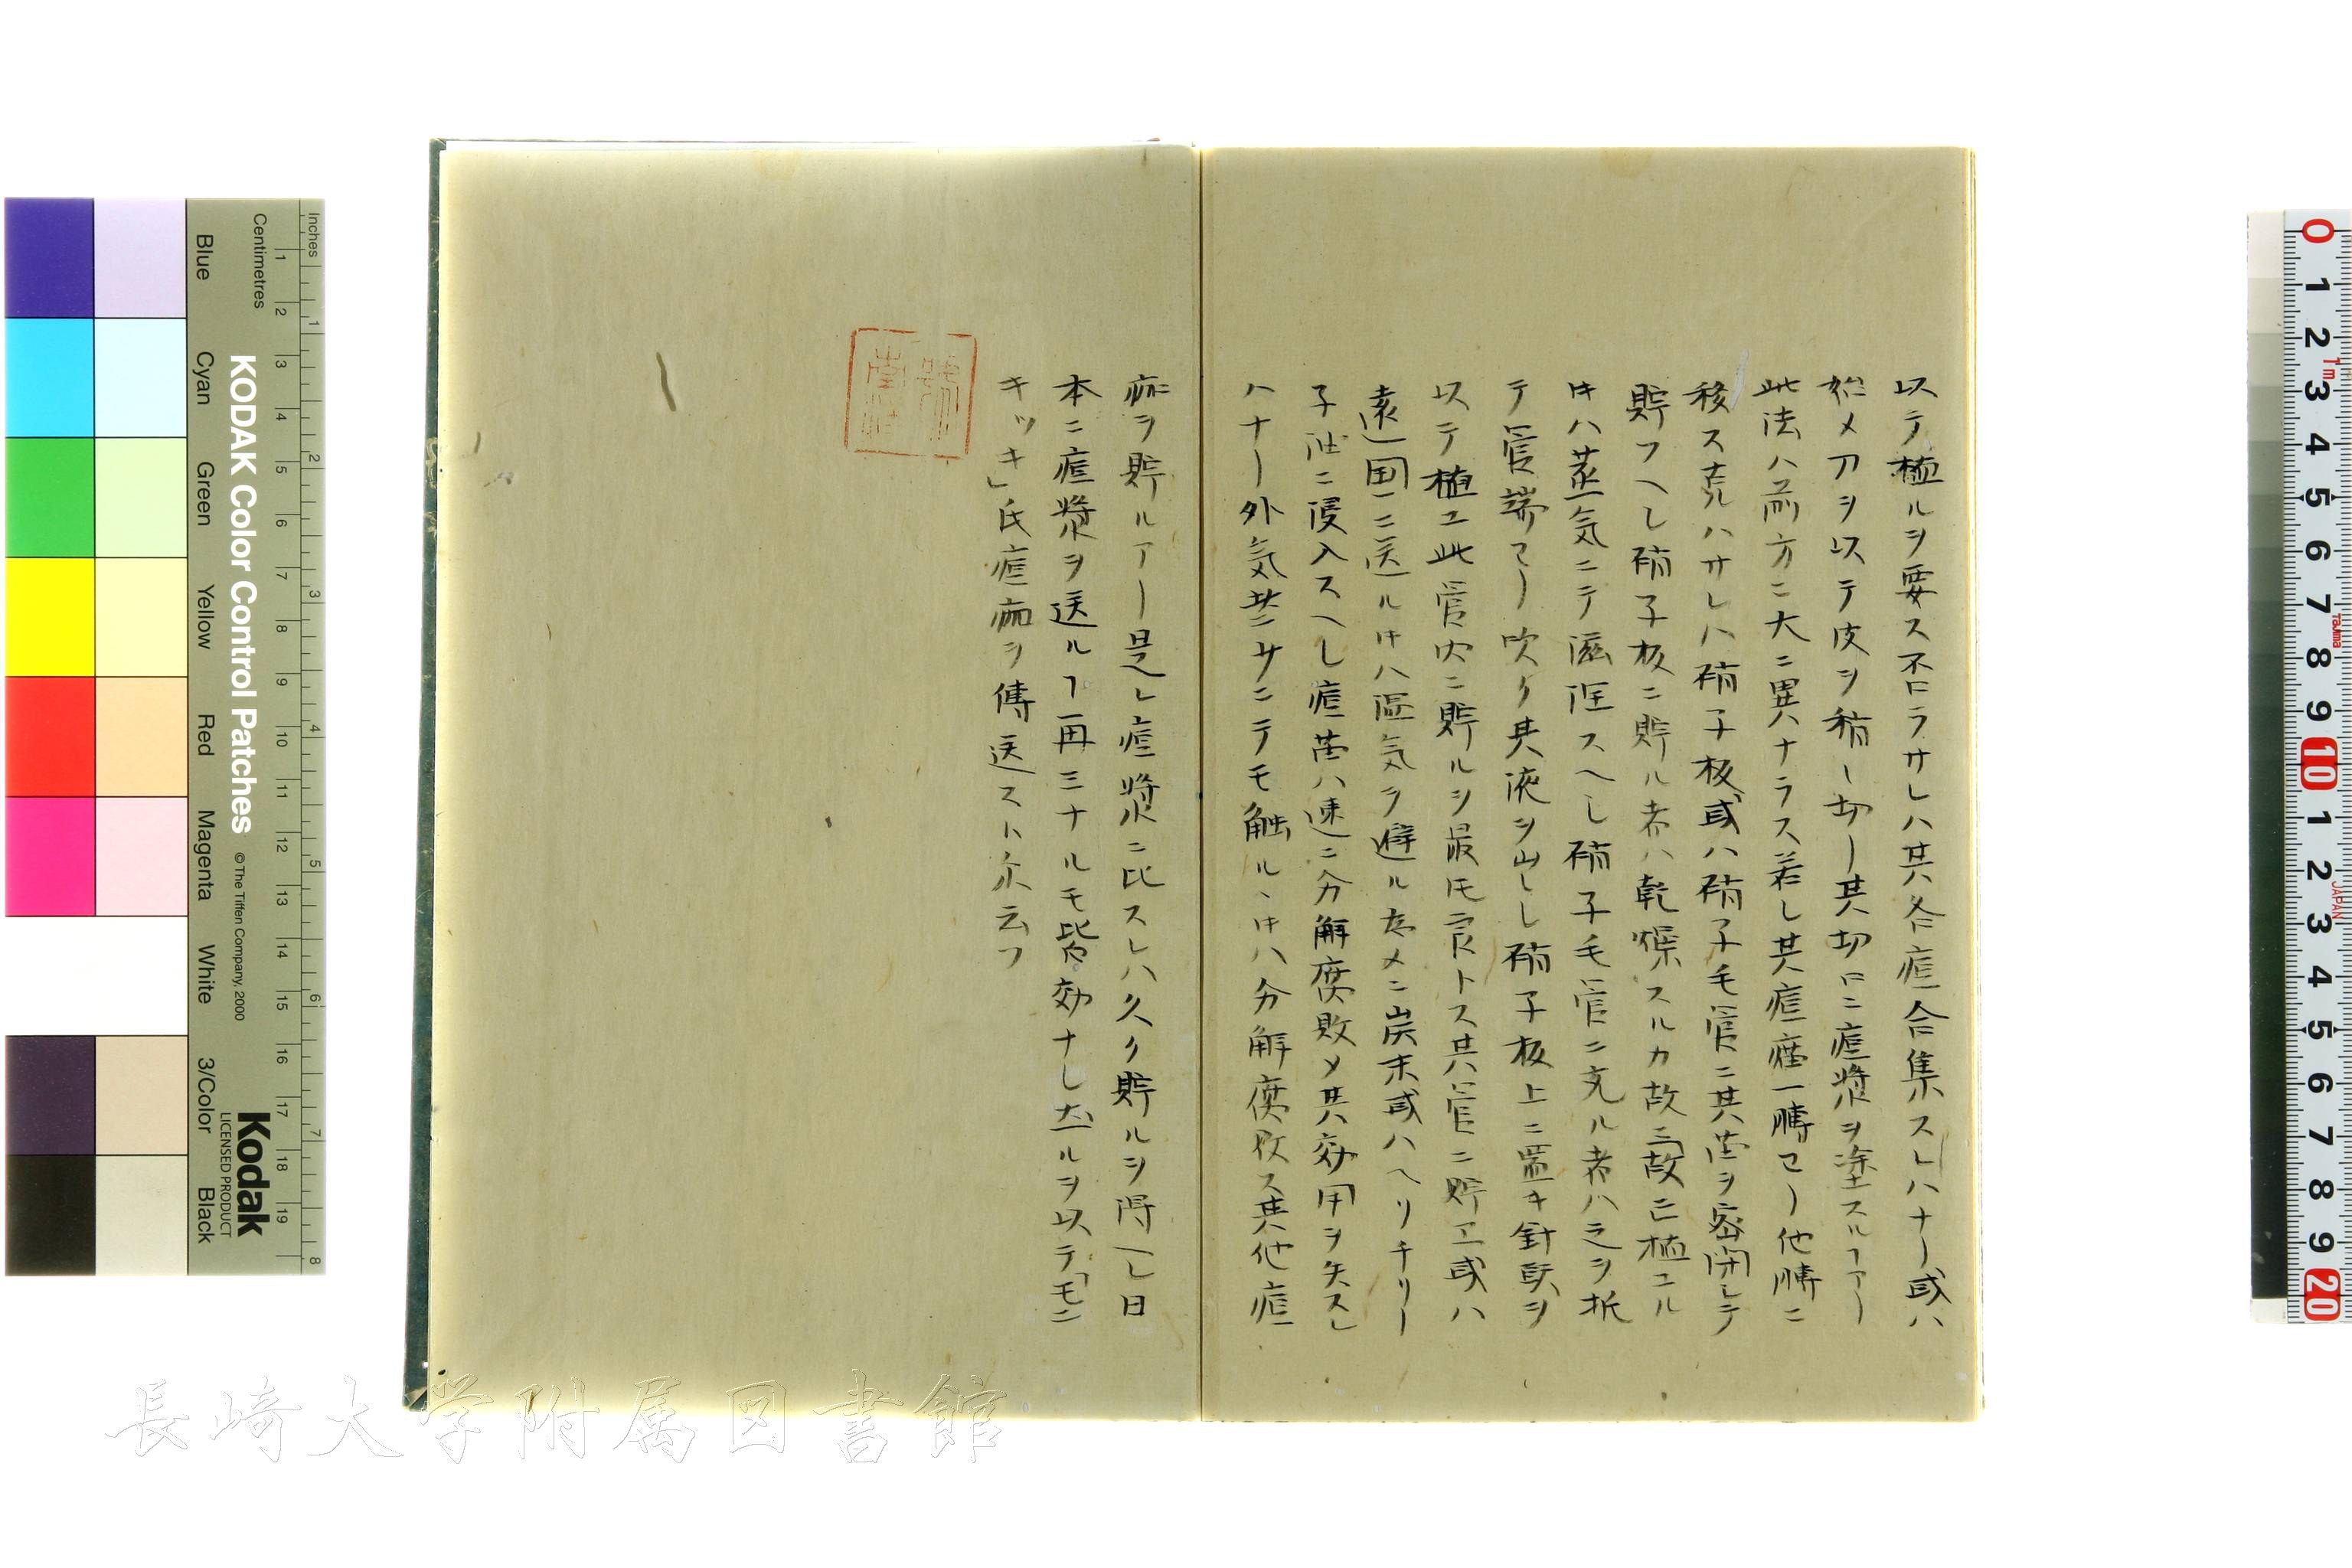 以テ植ルヲ要ス否ラサレハ其各痘合集スレハナリ或ハ
始メ刀ヲ以テ皮ヲ稍し切リ其切口ニ痘漿ヲ塗スルヿアリ
此法ハ前方ニ大ニ異ハナラス若し其痘痂一膊ヨリ他膊ニ
移ス克ハサレハ硝子板或ハ硝子毛管ニ其苗ヲ密閉シテ
貯フヘし硝子板ニ貯ル者ハ乾燥スルカ故ニ故ニ植ユル
キハ蒸気ニテ滋湿スヘし硝子毛管ニ充ル者ハ之ヲ折
テ管端ヨリ吹ケ其液ヲ出しし硝子板上ニ置キ針頭ヲ
以テ植ユ此管内ニ貯ルヲ最モ良トス共管ニ貯エ或ハ
遠国ニ送ルキハ湿気ヲ避ル為メニ炭末或ハヘリチリー
子油ニ浸入スヘし痘苗ハ速ニ分解腐敗メ其効用ヲ失スレ
ハナリ外気甚シサニテモ触ルヽキハ分解腐敗ス其他痘
痂ヲ貯ルアリ是レ痘漿ニ比スレハ久ク貯ルヲ得ヘし日
本ニ痘漿ヲ送ルヿ再三ナルモ皆効ナし故ルヲ以テ「モニ
キッキ」氏痘痂ヲ傳送スト尓云フ
長崎大学附属図書館
0 1 2 3 4 5 6 7 8 9 10 1 2 3 4 5 6 7 8 9 20
1m
Tajima
JAPAN
Inches
Centimetres
1 2 3 4 5 6 7 8
1 2 3 4 5 6 7 8 9 10 11 12 13 14 15 16 17 18 19
KODAK Color Control Patches
©The Tiffen Company, 2000
Kodak
LICENSED PRODUCT
Blue Cyan Green Yellow Red Magenta White 3/Color Black